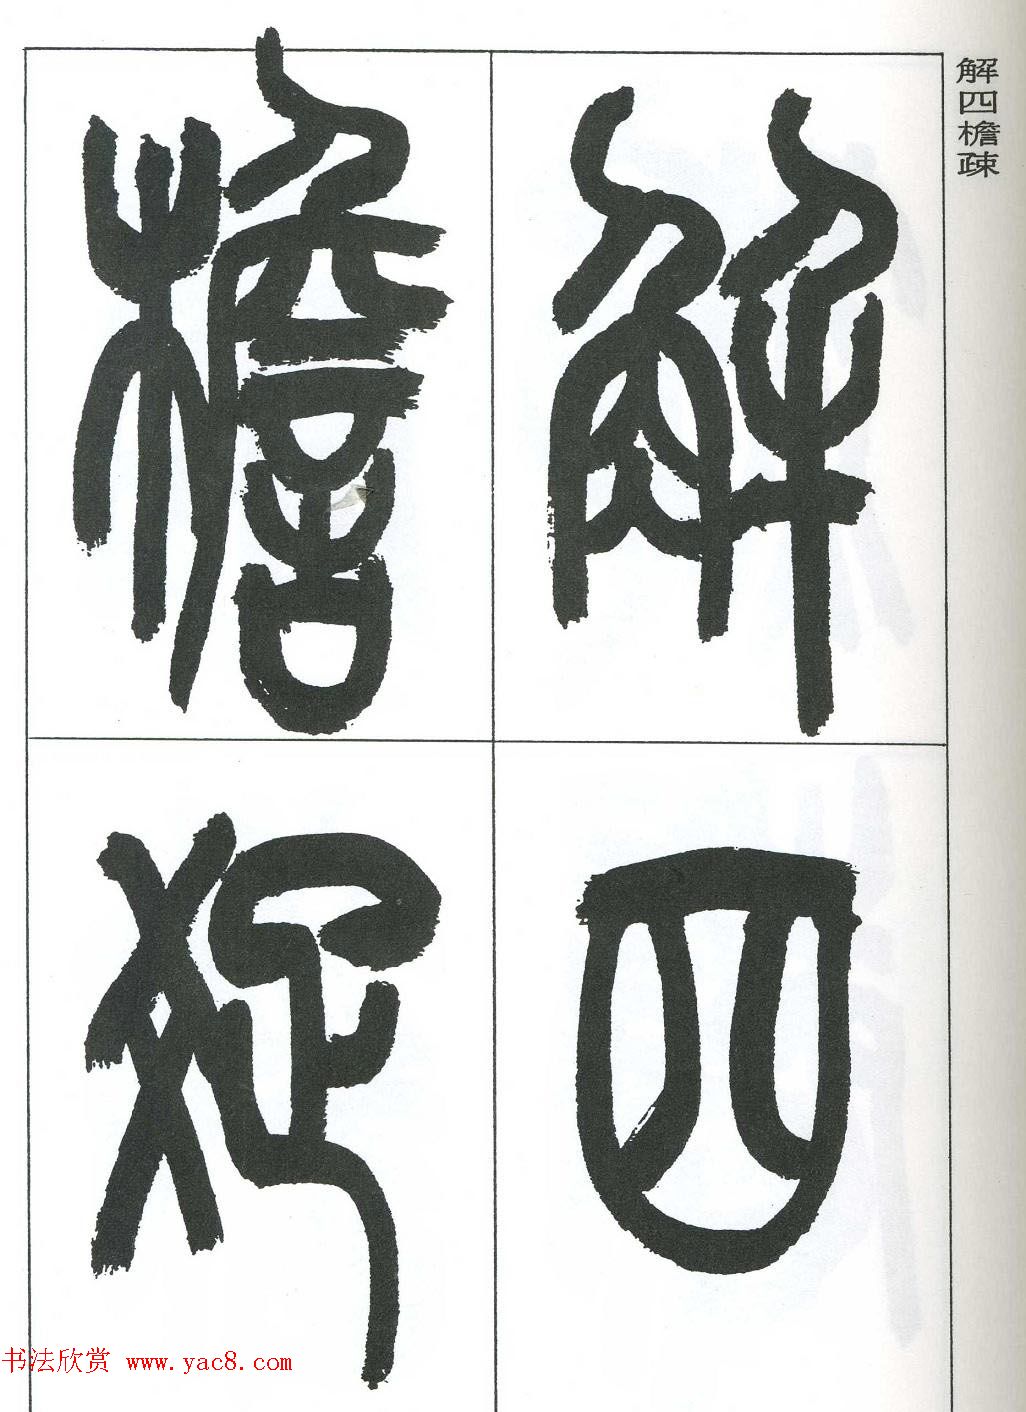 解四檐疎
解四
檐疎
书法欣赏 www.yac8.com